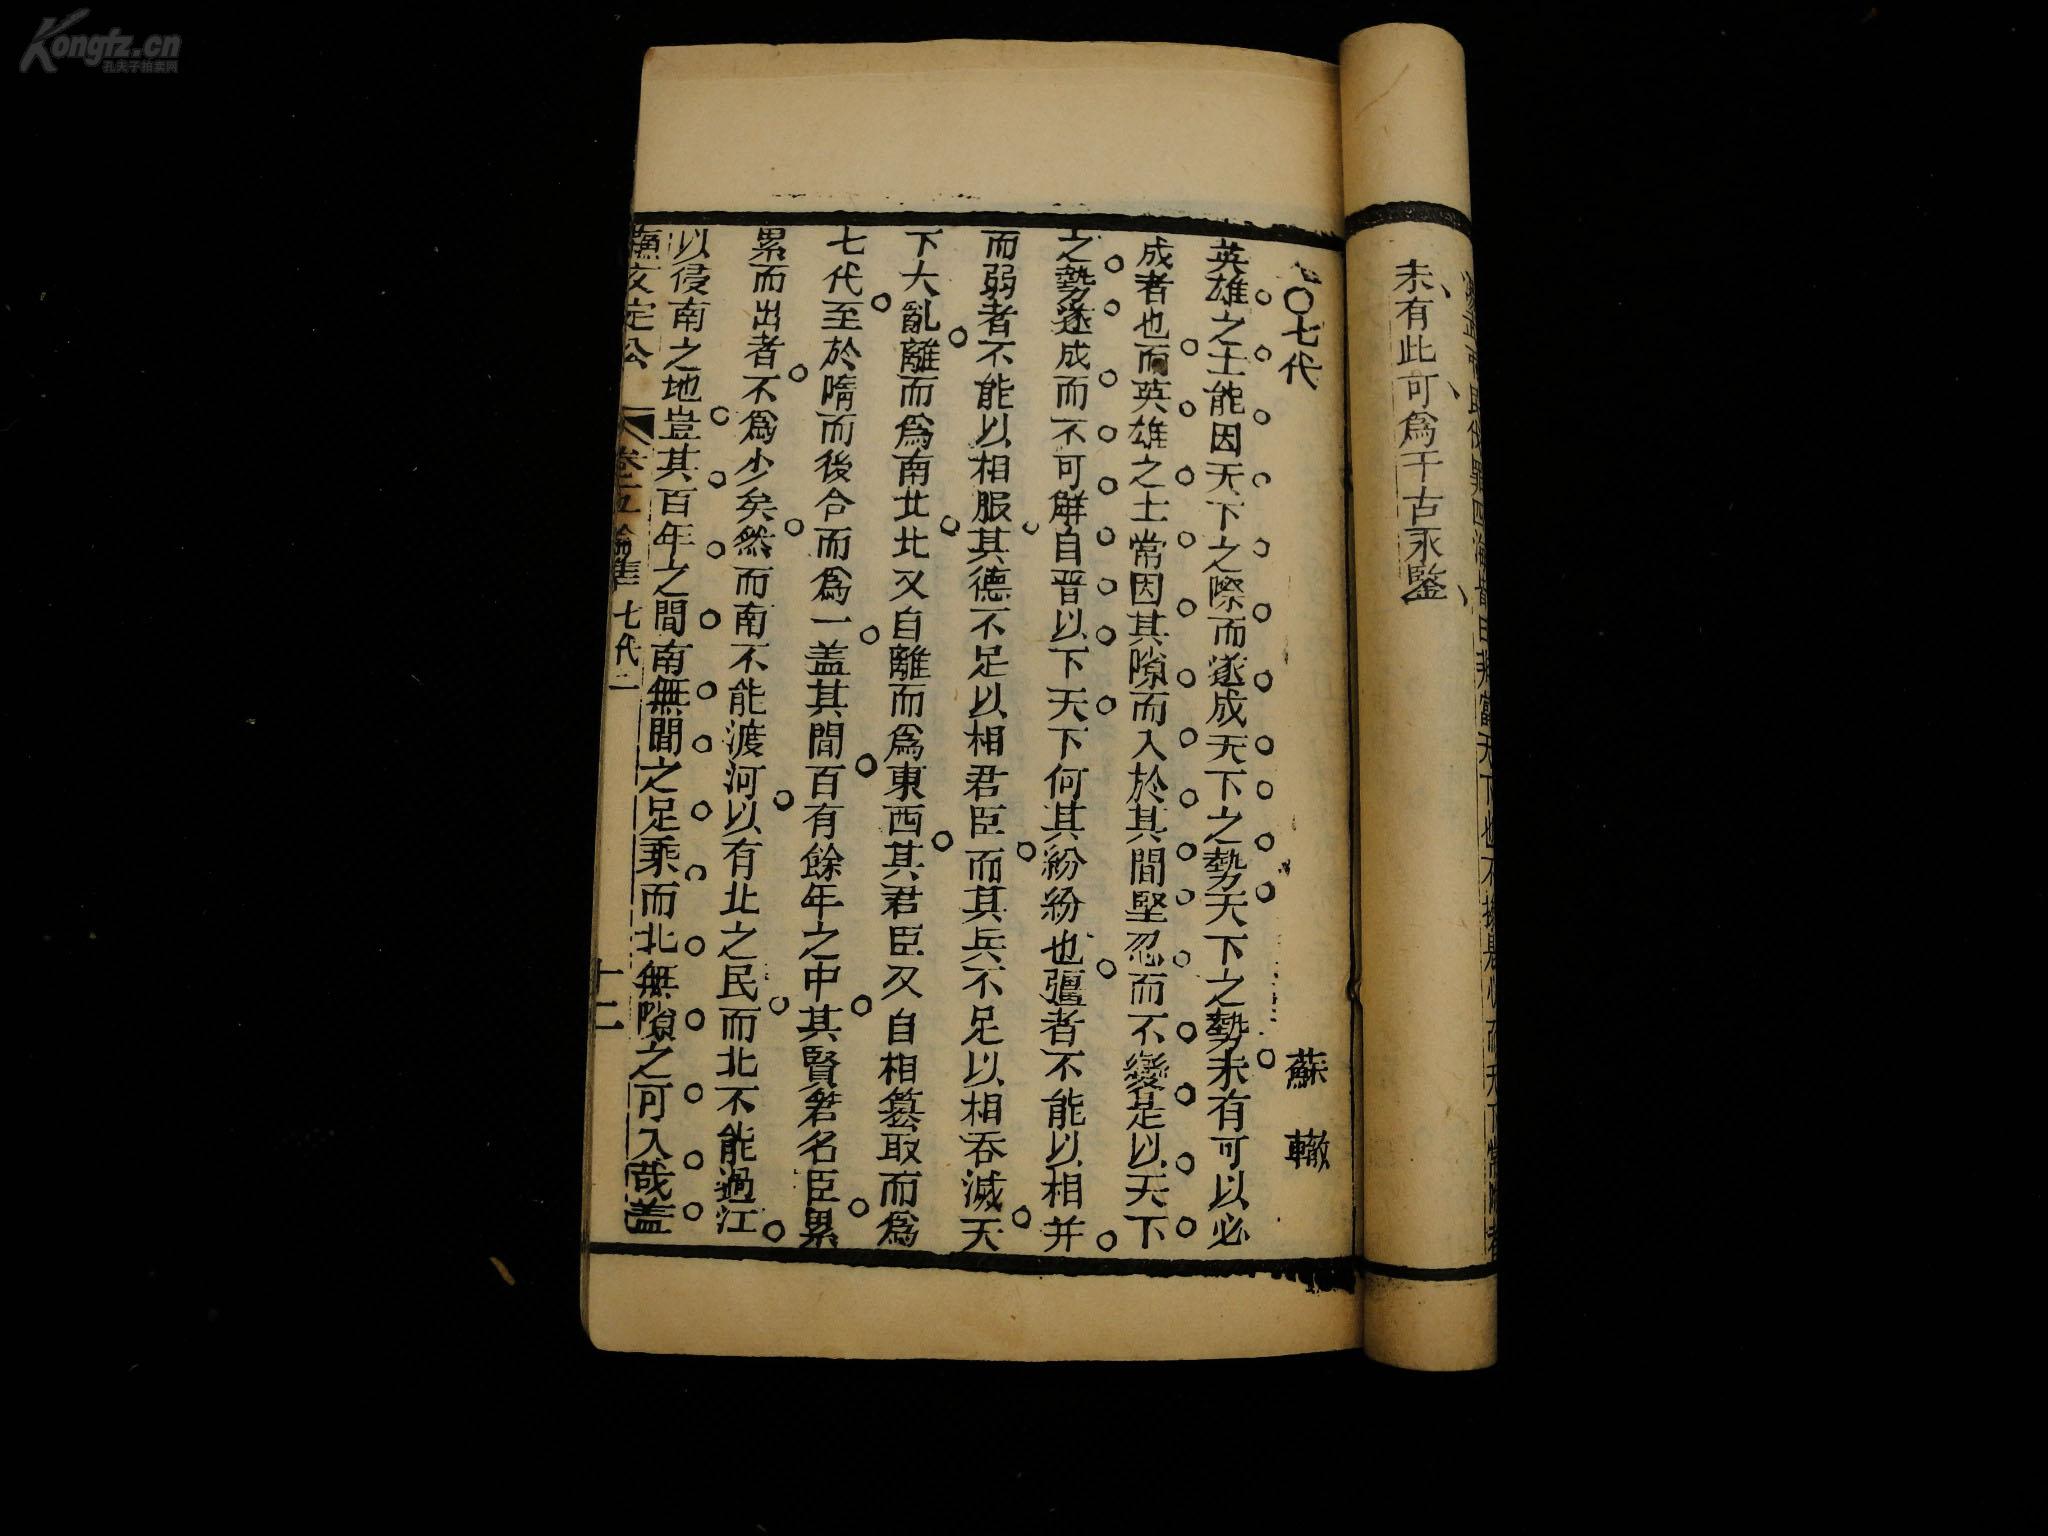 Kongfz.cn
孔夫子拍卖网
未有此可爲千古永鑒
〇七代
蘇轍
英雄之士能因天下之際而遂成天下之勢天下之勢未有可以必
成者也而英雄之士常因其隙而入於其間堅忍而不變是以天下
之勢遂成而不可解自晋以下天下何其紛紛也彊者不能以相并
而弱者不能以相服其德不足以相君臣而其兵不足以相吞滅天
下大亂離而爲南北北又自離而爲東西其君臣又自相簒取而爲
七代至於隋而後合而爲一盖其間百有餘年之中其賢君名臣累
累而出者不爲少矣然而南不能渡河以有北之民而北不能過江
以侵南之地豈其百年之間南無間之足乘而北無隙之可入哉盖
文定公 卷五論集 七代二 十二